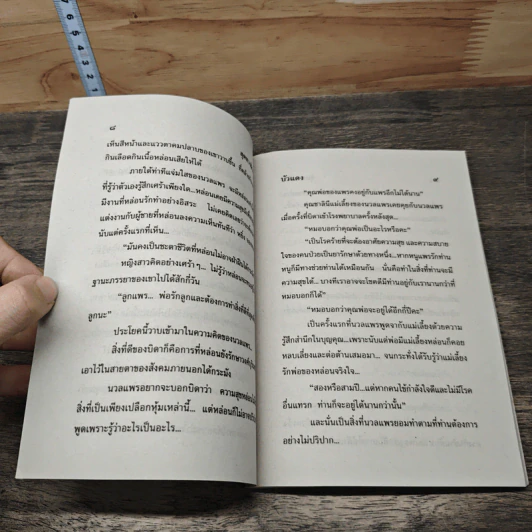 ๘
เห็นสีหน้าและแววตาคมปลาบของเขาวาบขึ้น
กินเลือดกินเนื้อหล่อนเสียให้ได้
ภายใต้ท่าทีแจ่มใสของนวลแพร
ที่รู้ว่าตัวเองรู้สึกเศร้าเพียงใด...หล่อนเคยมีความ
มีงานที่หล่อนรักทำอย่างอิสระ ไม่เคยคิดเลยว่า
แต่งงานกับผู้ชายที่หล่อนลงความเห็นทันทีว่า
นับแต่ครั้งแรกที่เห็น...
“มันคงเป็นชะตาชีวิตที่หล่อนไม่อาจฝืนได้
หญิงสาวคิดอย่างเศร้าๆ... ไม่รู้ว่าหล่อนจะ
ฐานะภรรยาของเขาไปได้สักกี่วัน
“ลูกแพร... พ่อรักลูกและต้องการทำสิ่งที่ดีที่สุด
ลูกนะ”
ประโยคนี้วาบเข้ามาในความคิดของนวลแพร
สิ่งที่ดีของบิดาก็คือการที่หล่อนยังรักษา
เอาไว้ในสายตาของสังคมภายนอกได้กระมัง
นวลแพรอยากจะบอกบิดาว่า ความสุขของ
สิ่งที่เป็นเพียงเปลือกหุ้มเหล่านี้... แต่หล่อนก็ไม่อาจ
พูดเพราะรู้ว่าอะไรเป็นอะไร...
บัวแดง ๙
“คุณพ่อของแพรคงอยู่กับแพรอีกไม่ได้นาน”
คุณชาลินีแม่เลี้ยงของนวลแพรเคยคุยกับนวลแพร
เมื่อครั้งที่บิดาเข้าโรงพยาบาลครั้งหลังสุด...
“หมอบอกว่าคุณพ่อเป็นอะไรหรือคะ”
“เป็นโรคร้ายที่จะต้องอาศัยความสุข และความสบาย
ใจของคนป่วยเป็นยารักษาด้วยทางหนึ่ง...หากหนูแพรรักท่าน
หนูก็มีทางช่วยท่านได้เหมือนกัน นั่นคือทำในสิ่งที่ท่านจะมี
ความสุขได้... บางทีเราอาจจะโชคดีมีท่านอยู่กับเรานานกว่าที่
หมอบอกก็ได้”
“หมอบอกว่าคุณพ่อจะอยู่ได้อีกกี่ปีคะ”
เป็นครั้งแรกที่นวลแพรพูดจากับแม่เลี้ยงด้วยความ
รู้สึกสำนึกในบุญคุณ...เพราะนับแต่พ่อมีแม่เลี้ยงหล่อนก็คอย
หลบเลี่ยงและต่อต้านเสมอมา... จนกระทั่งได้รับรู้ว่าแม่เลี้ยง
รักพ่อของหล่อนจริงใจ...
“สองหรือสามปี...แต่หากคนไข้กำลังใจดีและไม่มีโรค
อื่นแทรก ท่านก็จะอยู่ได้นานกว่านั้น”
และนั่นเป็นสิ่งที่นวลแพรยอมทำตามที่ท่านต้องการ
อย่างไม่ปริปาก...